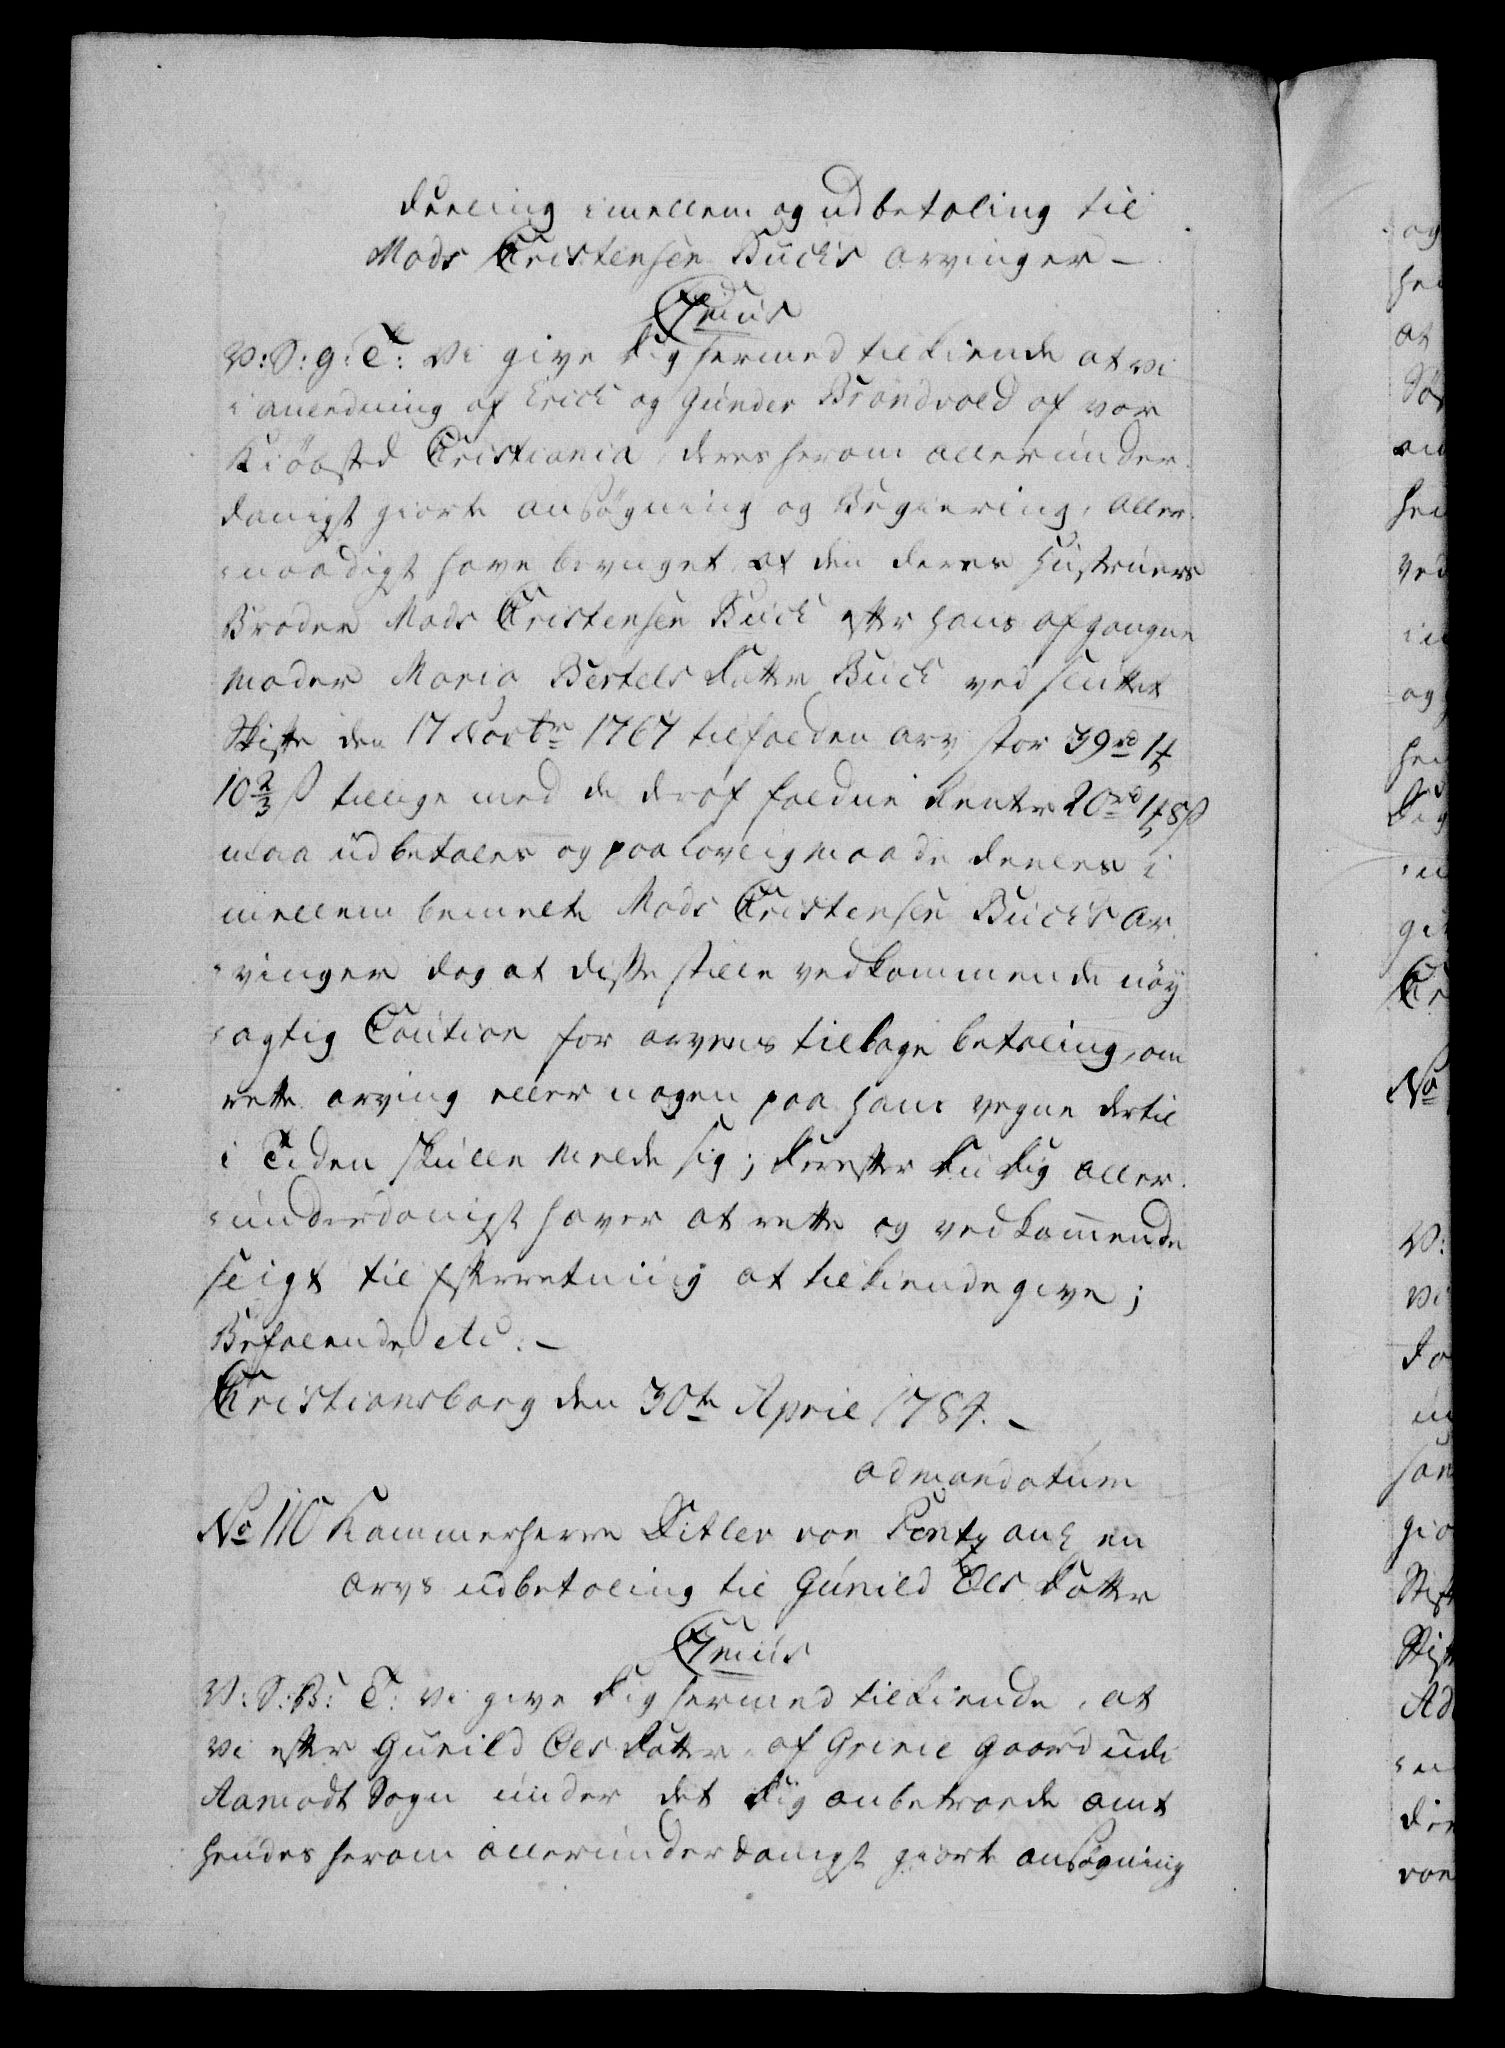 deeling imellem og udbetaling til
Mads Christensen Buchs arvinger –
V: S: g: T: Vi give dig hermed tilkiende at vi
i anledning af Erich og Gunder Brandvold af vor
Kiöbsted Christiania, deres herom allerunder
danigst giorte ansøgning og Begiering, aller
naadigst have bevilget at den deres Hustruers
Broder Mads Christensen Buch efter hans afgangne
Moder Maria Bertels Datter Buch ved sluttet
Skifte den 17 Novbr 1767 tilfalden arv stor 39 rd 1
10 2/3 ß tillige med de deraf faldne Renter 20 rd 1 8 ß
maa udbetales og paa lovligmaade deeles i
mellem bemelte Mads Christensen Buchs Ar
vinger dog at disse stille vedkommende nöy
agtig Caution for arvens tilbage betaling, om
rette arving eller nogen paa hans vegne dertil
i Tiden skulle melde sig; derefter du dig aller
underdanigst haver at rette og vedkommende
sligt til efterretning at tilkiendegive;
Befalende etc: –
Christiansborg den 30te April 1784. –
ad mandatum
No 110 Kammerherre Ditlev von Pentz anl en
arvs udbetaling til Gunild Ols Datter
V: S: B: T: Vi give dig hermed tilkiende, at
vi efter Gunild Ols Datter af Gaard udi
Aamodt Sogn under det dig anbetroede amt
hendes herom allerunderdanigst giorte ansøgning